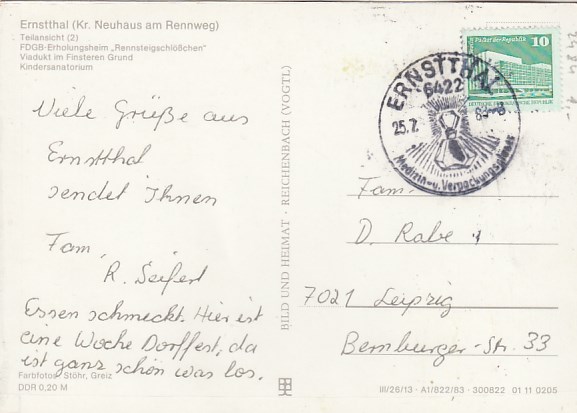 Ernstthal (Kr. Neuhaus am Rennweg)
Teilansicht (2)
FDGB-Erholungsheim „Rennsteigschlößchen"
Viadukt im Finsteren Grund
Kindersanatorium
Viele Grüße aus
Ernstthal
sendet Ihnen
Fam.
R. Seifert
Essen schmeckt. Hier ist
eine Woche Dorffest, da
ist ganz schön was los.
Farbfotos: Stöhr, Greiz
DDR 0,20 M
BILD UND HEIMAT · REICHENBACH (VOGTL)
Palast der Republik 10
DEUTSCHE DEMOKRATISCHE REPUBLIK
ERNSTTHAL
6422
25.7.
Medizin- u. Verpackungsgläser
Fam.
D. Rabe
7021 Leipzig
Bernburger-Str. 33
III/26/13 · A1/822/83 · 300822 01 11 0205